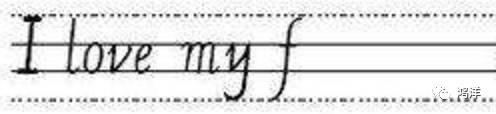 I love my f
鸿洋